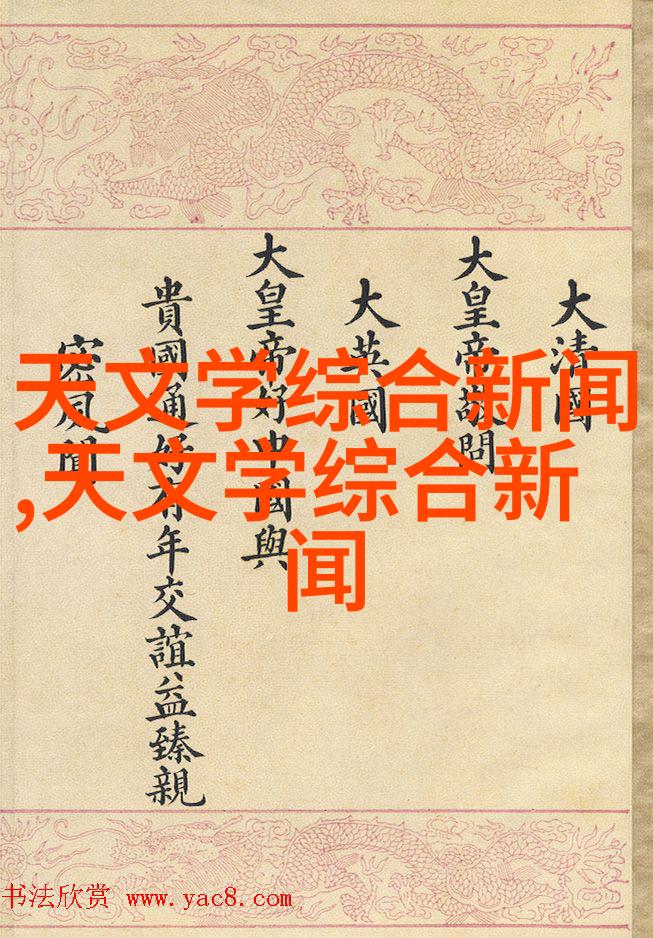 大清國
大皇帝敬問
大英國
大皇帝好中國與
貴國通好有年交誼益臻親
密夙聞
天文学综合新闻
,天文学综合新
闻
书法欣赏 www.yac8.com